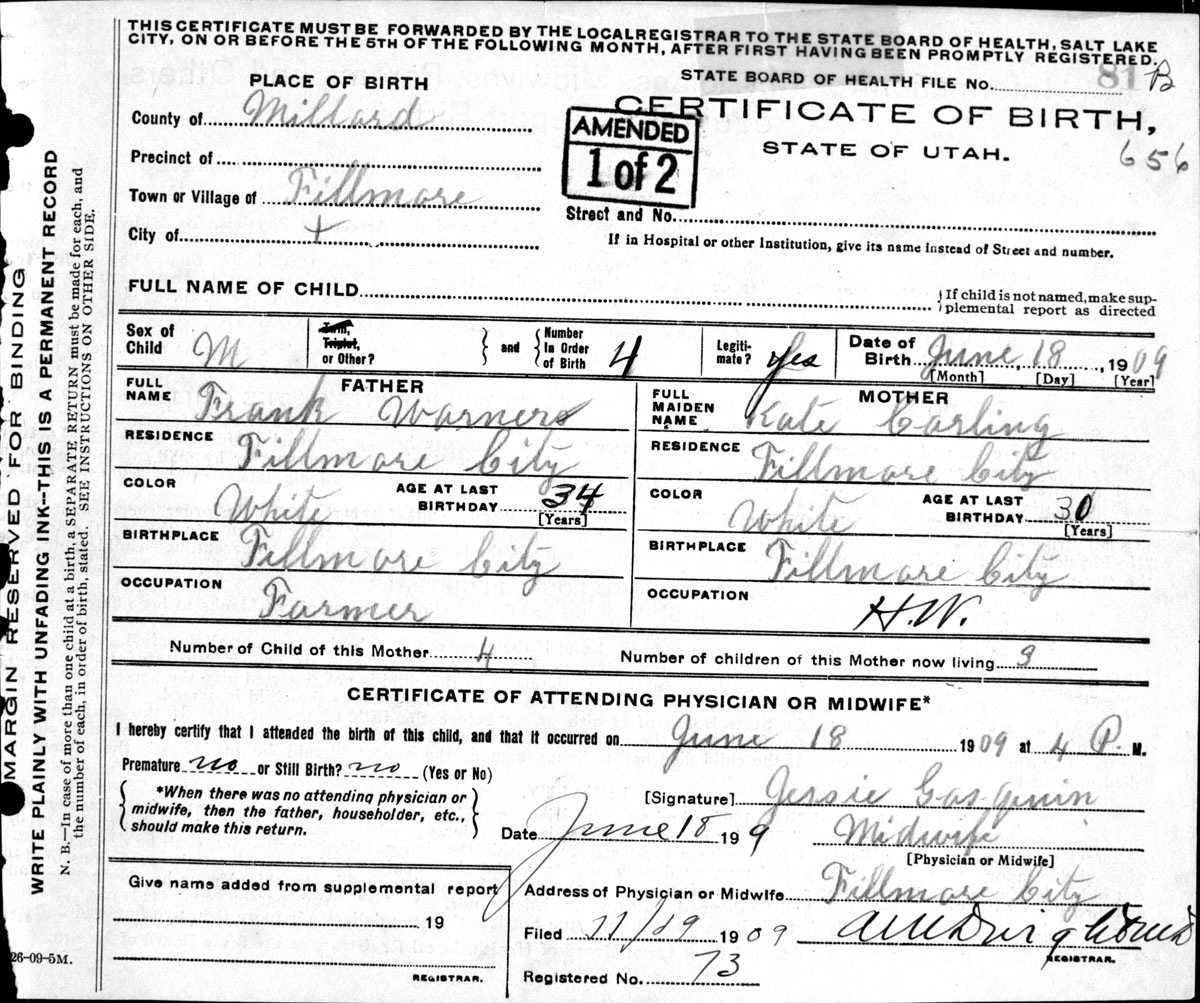 THIS CERTIFICATE MUST BE FORWARDED BY THE LOCAL REGISTRAR TO THE STATE BOARD OF HEALTH, SALT LAKE
CITY, ON OR BEFORE THE 5TH OF THE FOLLOWING MONTH, AFTER FIRST HAVING BEEN PROMPTLY REGISTERED.
STATE BOARD OF HEALTH FILE NO. 81 B
PLACE OF BIRTH
CERTIFICATE OF BIRTH,
STATE OF UTAH.
656
AMENDED
1 of 2
County of Millard
Precinct of
Town or Village of Fillmore
City of
Street and No.
If in Hospital or other Institution, give its name instead of Street and number.
FULL NAME OF CHILD
If child is not named, make sup-
plemental report as directed
Sex of Child M
Twin, Triplet, or Other? and Number In Order of Birth 4
Legiti-mate? Yes
Date of Birth June 18, 1909
[Month] [Day] [Year]
FATHER
FULL NAME Frank Warner
RESIDENCE Fillmore City
COLOR White AGE AT LAST BIRTHDAY 34 [Years]
BIRTHPLACE Fillmore City
OCCUPATION Farmer
MOTHER
FULL MAIDEN NAME Kate Carling
RESIDENCE Fillmore City
COLOR White AGE AT LAST BIRTHDAY 30 [Years]
BIRTHPLACE Fillmore City
OCCUPATION H.W.
Number of Child of this Mother 4
Number of children of this Mother now living 3
CERTIFICATE OF ATTENDING PHYSICIAN OR MIDWIFE*
I hereby certify that I attended the birth of this child, and that it occurred on June 18 1909 at 4 P. M.
Premature no or Still Birth? no (Yes or No)
*When there was no attending physician or
midwife, then the father, householder, etc.,
should make this return.
[Signature] Jessie
Date June 18 199
Midwife
[Physician or Midwife]
Give name added from supplemental report
19
REGISTRAR.
Address of Physician or Midwife Fillmore City
Filed 1909
REGISTRAR.
Registered No. 73
26-09-5M.
MARGIN RESERVED FOR BINDING
WRITE PLAINLY WITH UNFADING INK--THIS IS A PERMANENT RECORD
N. B.—In case of more than one child at a birth, a SEPARATE RETURN must be made for each, and
the number of each, in order of birth, stated. SEE INSTRUCTIONS ON OTHER SIDE.